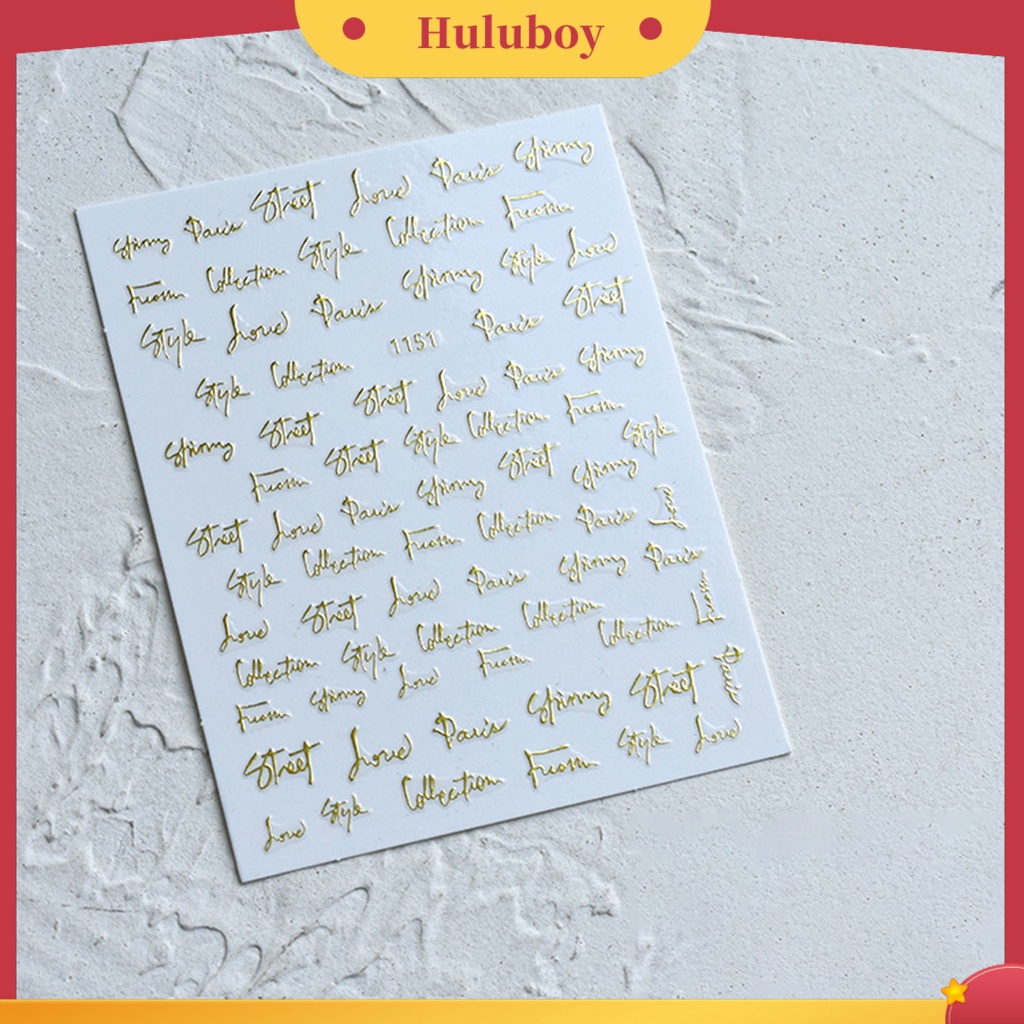 Huluboy
Street Love Paris
Paris
Style Collection From
From Collection
Style Love
Style Love Paris
Street
1151 Paris
Style Collection
Street Love Paris
Street
Style Collection From
From Street
Style
Street
Street Love Paris
Love
Style Collection From Collection Paris
Love Street Love Paris Paris
From
Collection Style Collection Collection Collection
From Love From
Paris
Street Love Paris Street
Love Style Collection From Style Love